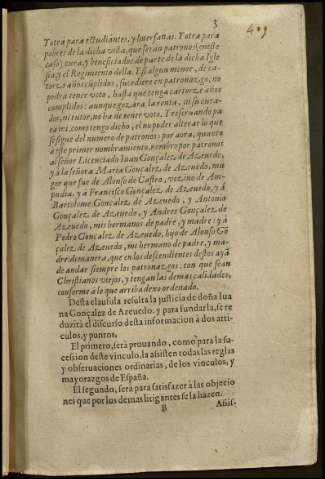 3
409
Y otra para estudiantes, y huerfanas. Y otra para
pobres de la dicha villa, que serán patronos (en este
caso) cura, y beneficiados de parte de la dicha Igle
sia, y el Regimiento della. Y si algun menor, de ca-
torze años cũplidos, sucediere en patronazgo, no
podra tener voto, hasta que tenga catorze años
cumplidos: aunque goze de la renta, ni su cura-
dor, ni tutor, no ha de tener voto. Y reseruando pa
ra mi, como tengo dicho, el no poder alterar lo que
se sigue del numero de patronos: por aora, quanto
à este primer nombramiento, nombro por patronos
al señor Licenciado Iuan Gonçalez de Azeuedo,
y à la señora Maria Gonçalez de Azeuedo, mu-
ger que fue de Alonso de Castro, vezino de Am-
pudia, y à Francisco Gonçalez de Azeuedo, y à
Bartolome Gonçalez de Azeuedo, y Antonio
Gonçalez de Azeuedo, y Andres Gonçalez de
Azeuedo, mis hermanos de padre, y madre: y à
Pedro Gonçalez de Azeuedo, hijo de Alonso Gō
çalez de Azeuedo, mi hermano de padre, y ma-
dre: de manera, que en los descendientes destos ayã
de andar siempre los patronazgos. con que sean
Christianos viejos, y tengan las demas calidades,
conforme à lo que arriba dexo ordenado.
Desta clausula resulta la justicia de doña Iua
na Gonçalez de Azeuedo: y para fundarla, se re
duzirà el discurso desta informacion à dos arti-
culos, y puntos.
El primero, serà prouando, como para la su-
cession deste vinculo, la assisten todas las reglas
y obseruaciones ordinarias, de los vinculos, y
mayorazgos de España.
El segundo, serà para satisfazer à las objecio
nes que por los demas litigantes se la hazen.
B
Assis-